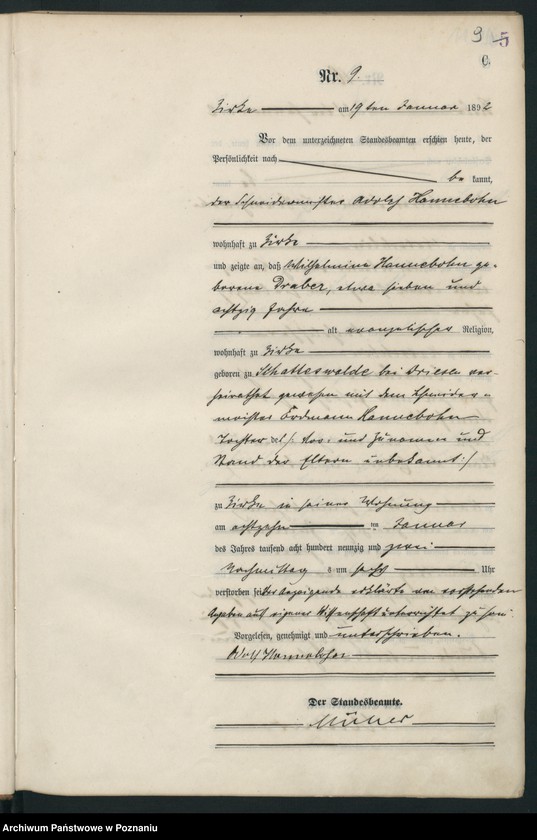 9 5
C.
Nr. 9.
Zirke am 19ten Januar 1892
Vor dem unterzeichneten Standesbeamten erschien heute, der
Persönlichkeit nach
be kannt,
der Schneidermeister Adolf Hannebohn
wohnhaft zu Zirke
und zeigte an, daß Wilhelmine Hannebohn ge-
borene Draber, etwa sieben und
achtzig Jahre
alt evangelischer Religion,
wohnhaft zu Zirke
geboren zu Schattenwalde bei Driesen ver-
heirathet gewesen mit dem Schneider-
meister Erdmann Hannebohn
Tochter des /: Vor- und Zunamen und
Stand der Eltern unbekannt :/
zu Zirke in seiner Wohnung
am achtzehn ten Januar
des Jahres tausend acht hundert neunzig und zwei
Nachmittag s um sechs Uhr
verstorben sei Der Anzeigende erklärte von vorstehenden
Angaben aus eigener Wissenschaft unterrichtet zu sein.
Vorgelesen, genehmigt und unterschrieben.
Adolf Hannebohn
Der Standesbeamte.
Müller
Archiwum Państwowe w Poznaniu